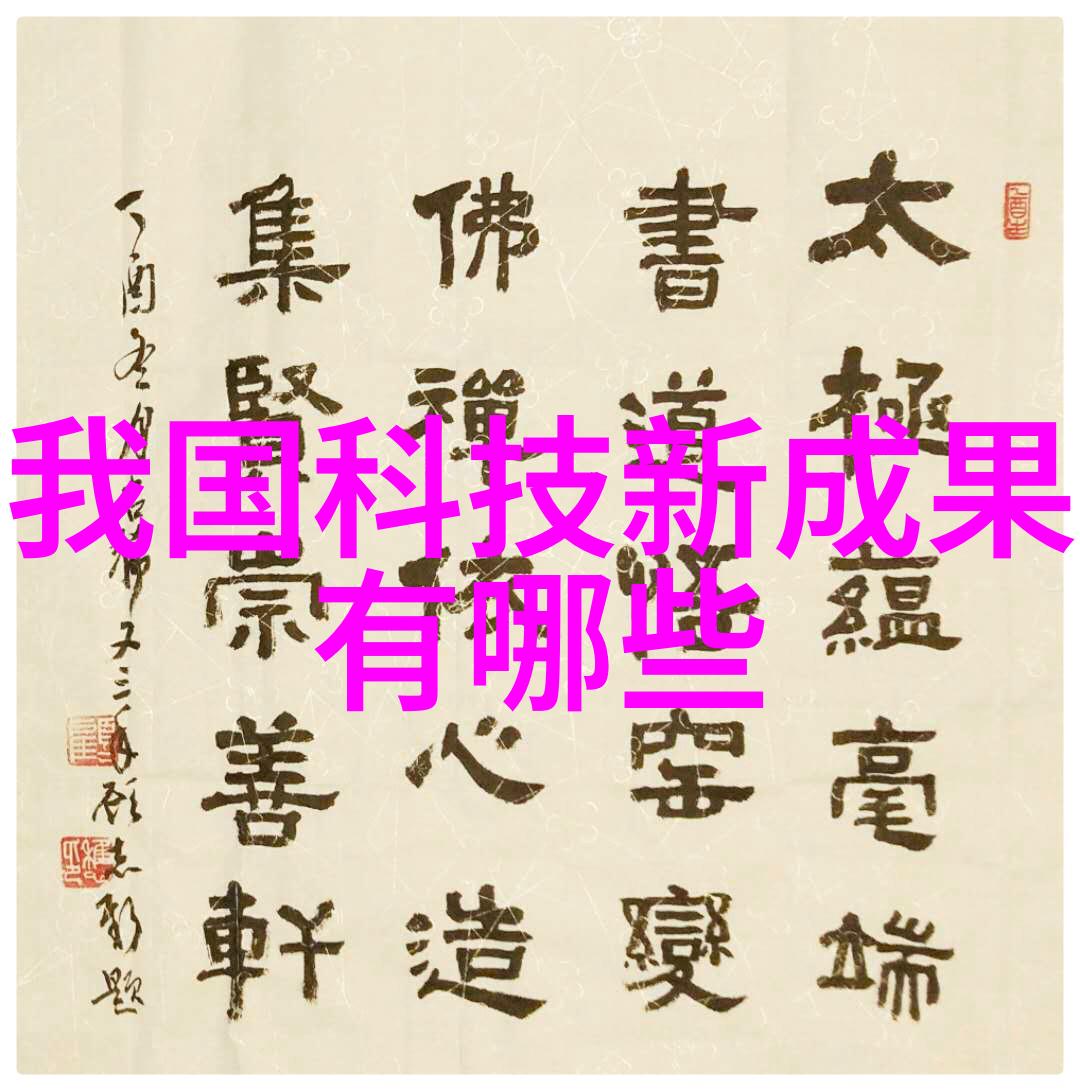 我国科技新成果
有哪些
太極蘊毫端
書道窑變
佛禪心造
集賢崇善軒
丁酉冬月